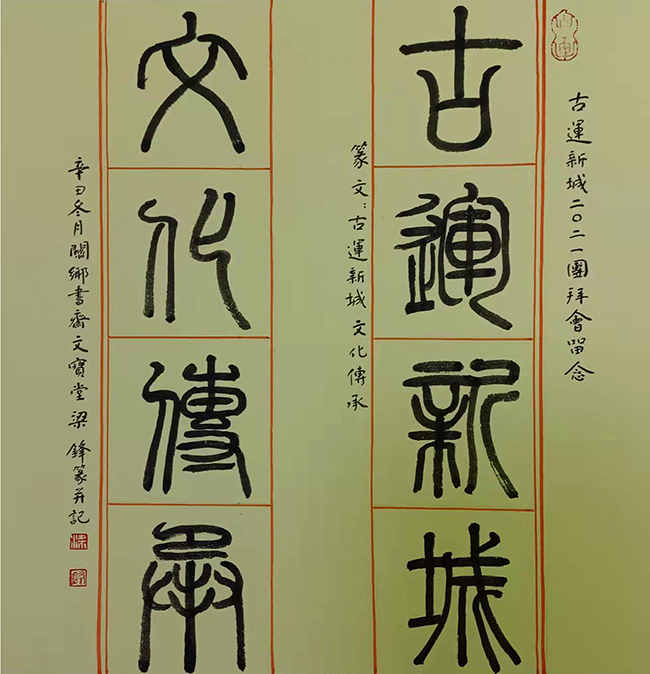 古運新城二〇二一團拜會留念
古運新城
篆文：古運新城 文化傳承
文化傳承
辛丑冬月鄉書齋文寶堂梁鋒篆并記
梁
鋒